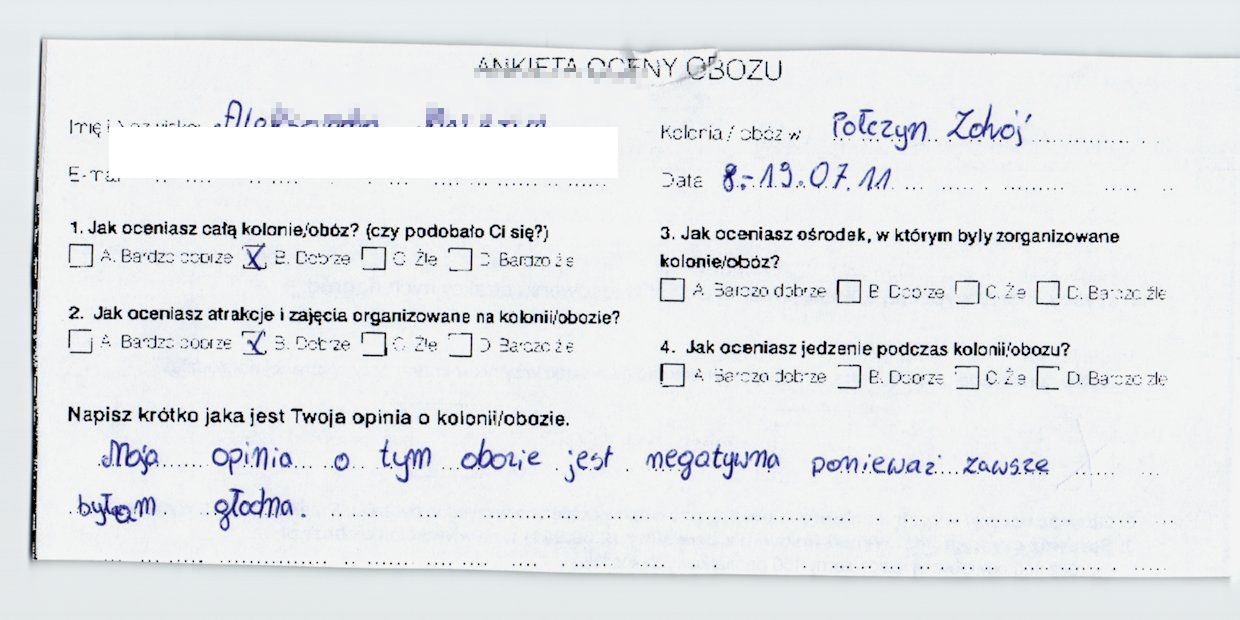 ANKIETA OCENY OBOZU
Imię i Nazwisko:
Kolonia / obóz w Połczyn Zdrój
E-mail
Data 8.-19.07.11
1. Jak oceniasz całą kolonie/obóz? (czy podobało Ci się?)
A. Bardzo dobrze X B. Dobrze C. Źle D. Bardzo źle
2. Jak oceniasz atrakcje i zajęcia organizowane na kolonii/obozie?
A. Bardzo dobrze X B. Dobrze C. Źle D. Bardzo źle
3. Jak oceniasz ośrodek, w którym były zorganizowane
kolonie/obóz?
A. Bardzo dobrze B. Dobrze C. Źle D. Bardzo źle
4. Jak oceniasz jedzenie podczas kolonii/obozu?
A. Bardzo dobrze B. Dobrze C. Źle D. Bardzo źle
Napisz krótko jaka jest Twoja opinia o kolonii/obozie.
Moja opinia o tym obozie jest negatywna ponieważ zawsze
byłam głodna.